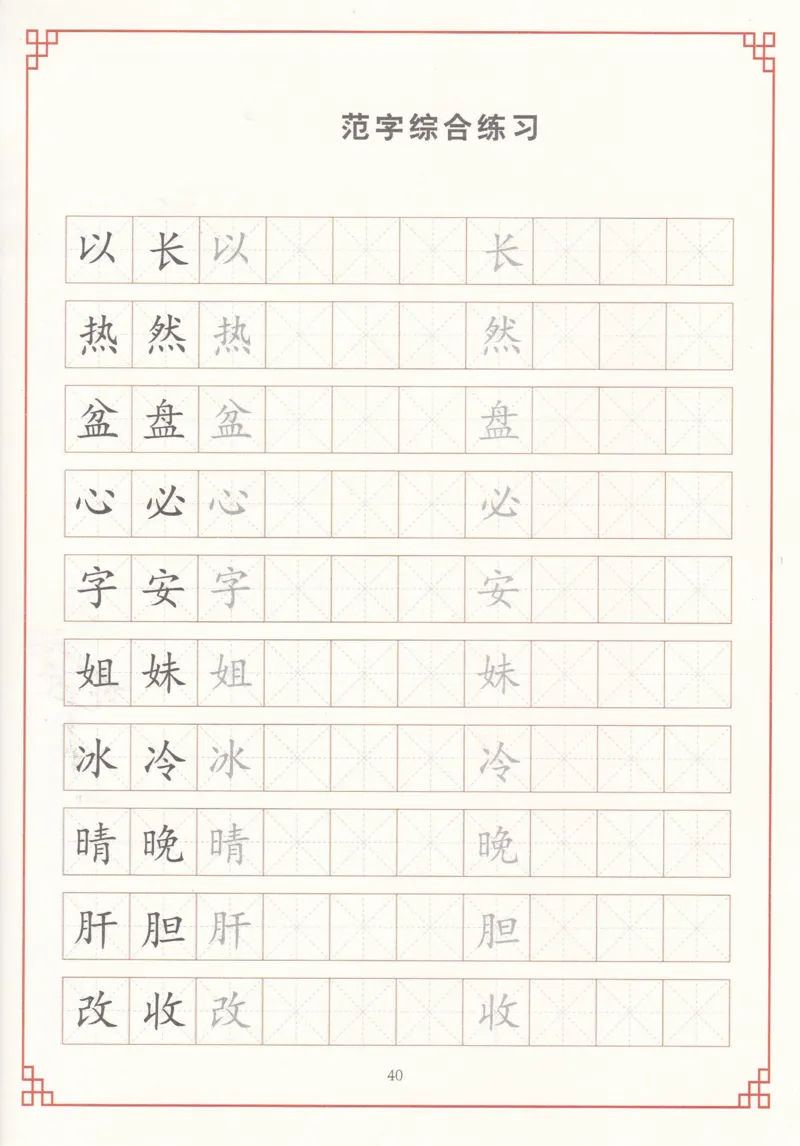 范字综合练习
以长以长
热然热然
盆盘盆盘
心必心必
字安字安
姐妹姐妹
冰冷冰冷
晴晚晴晚
肝胆肝胆
改收改收
40